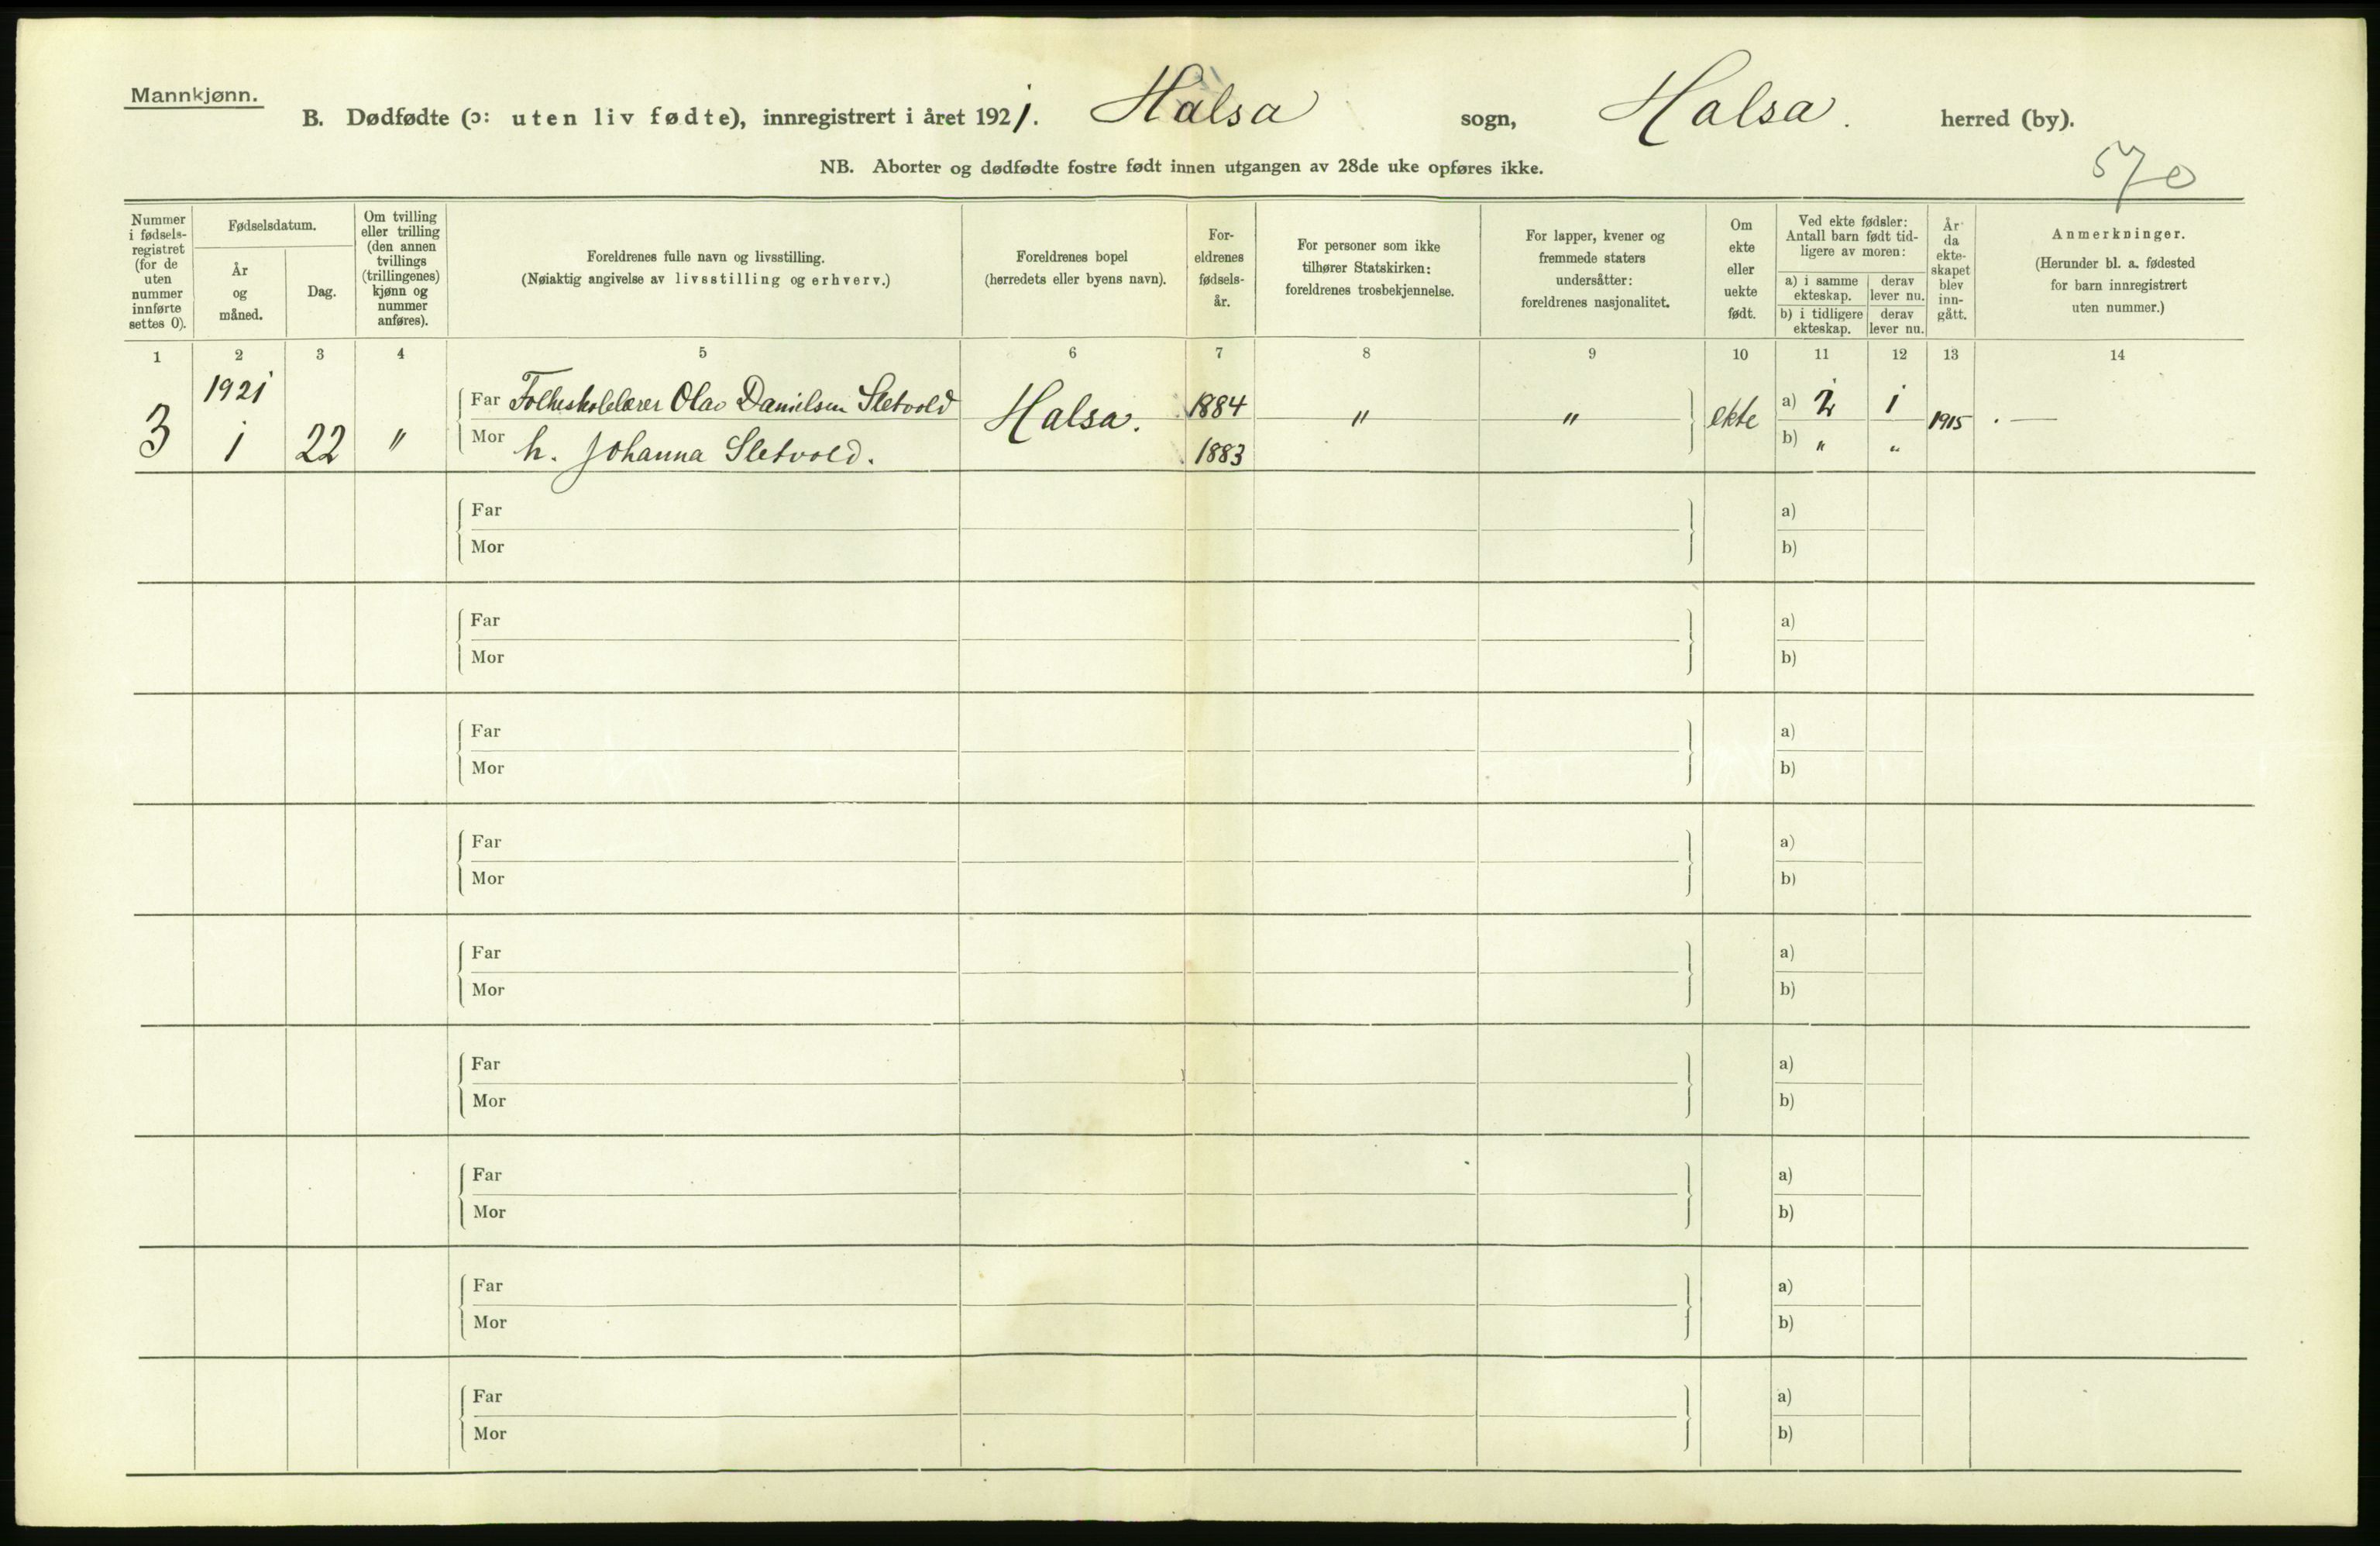 Mannkjønn.
B. Dødfødte (ɔ: uten liv fødte), innregistrert i året 1921. Halsa sogn, Halsa. herred (by).
NB. Aborter og dødfødte fostre født innen utgangen av 28de uke opføres ikke.
570
Nummer i fødsels-registret (for de uten nummer innførte settes 0).
Fødselsdatum.
År og måned.
Dag.
Om tvilling eller trilling (den annen tvillings (trillingenes) kjønn og nummer anføres).
Foreldrenes fulle navn og livsstilling.
(Nøiaktig angivelse av livsstilling og erhverv.)
Foreldrenes bopel
(herredets eller byens navn).
For-eldrenes fødsels-år.
For personer som ikke tilhører Statskirken: foreldrenes trosbekjennelse.
For lapper, kvener og fremmede staters undersåtter: foreldrenes nasjonalitet.
Om ekte eller uekte født.
Ved ekte fødsler: Antall barn født tid-ligere av moren:
a) i samme ekteskap.
derav lever nu.
b) i tidligere ekteskap.
derav lever nu.
År da ekte-skapet blev inn-gått.
Anmerkninger.
(Herunder bl. a. fødested for barn innregistrert uten nummer.)
1 2 3 4 5 6 7 8 9 10 11 12 13 14
1921
Far Folkeskolelærer Olav Danielsen Sletvold Halsa. 1884 " " ekte a) 2 1 1915 . —
3 1 22 " Mor h. Johanna Sletvold. 1883 b) " "
Far a)
Mor b)
Far a)
Mor b)
Far a)
Mor b)
Far a)
Mor b)
Far a)
Mor b)
Far a)
Mor b)
Far a)
Mor b)
Far a)
Mor b)
Far a)
Mor b)